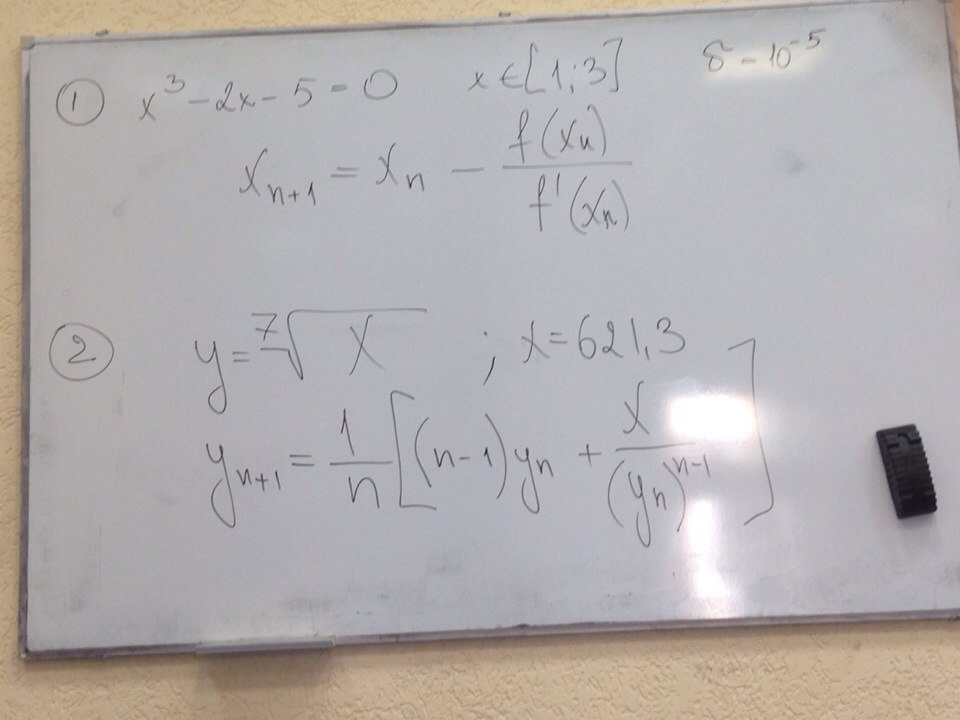 ① x³ − 2x − 5 = 0 x ∈ [1; 3] δ = 10⁻⁵
xₙ₊₁ = xₙ − f(xₙ) / f'(xₙ)
② y = ⁷√x ; x = 621,3
yₙ₊₁ = 1/n [(n−1)yₙ + x / (yₙ)ⁿ⁻¹]